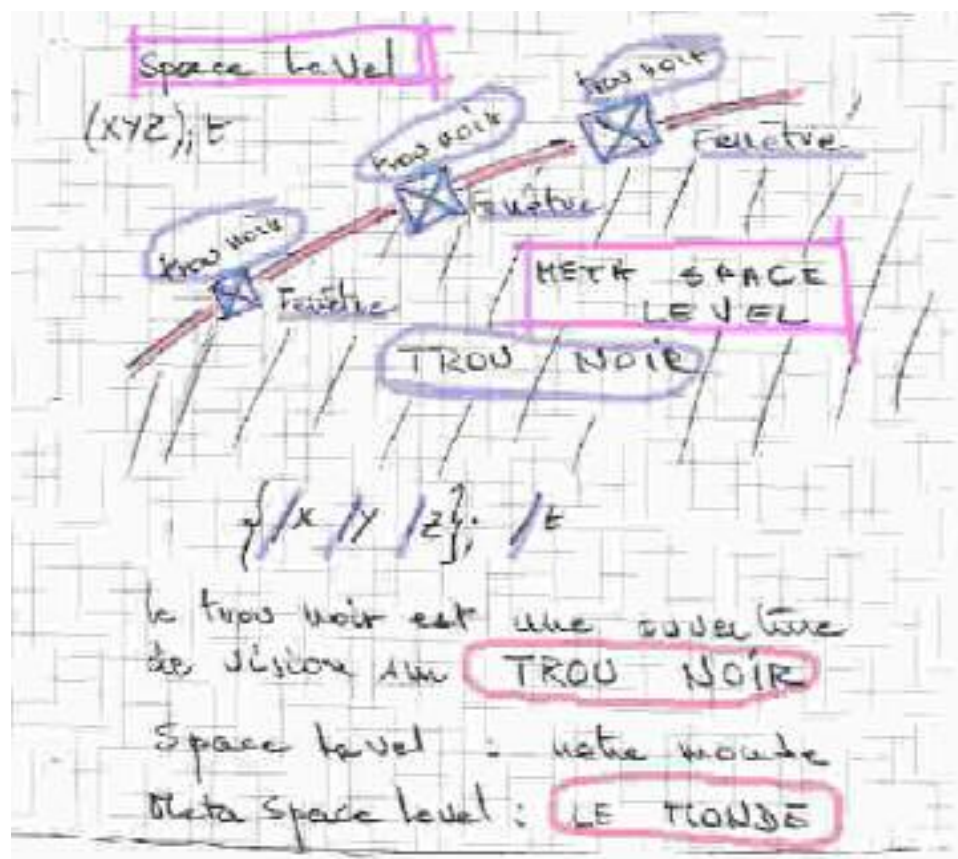 Space Level
(XYZ);t
trou noir
trou noir
trou noir
Fenêtre
Fenêtre
Fenêtre
META SPACE
LEVEL
TROU NOIR
{/X /Y /Z}; /t
le trou noir est une ouverture
de vision sur TROU NOIR
Space Level : notre monde
Meta Space Level : LE MONDE